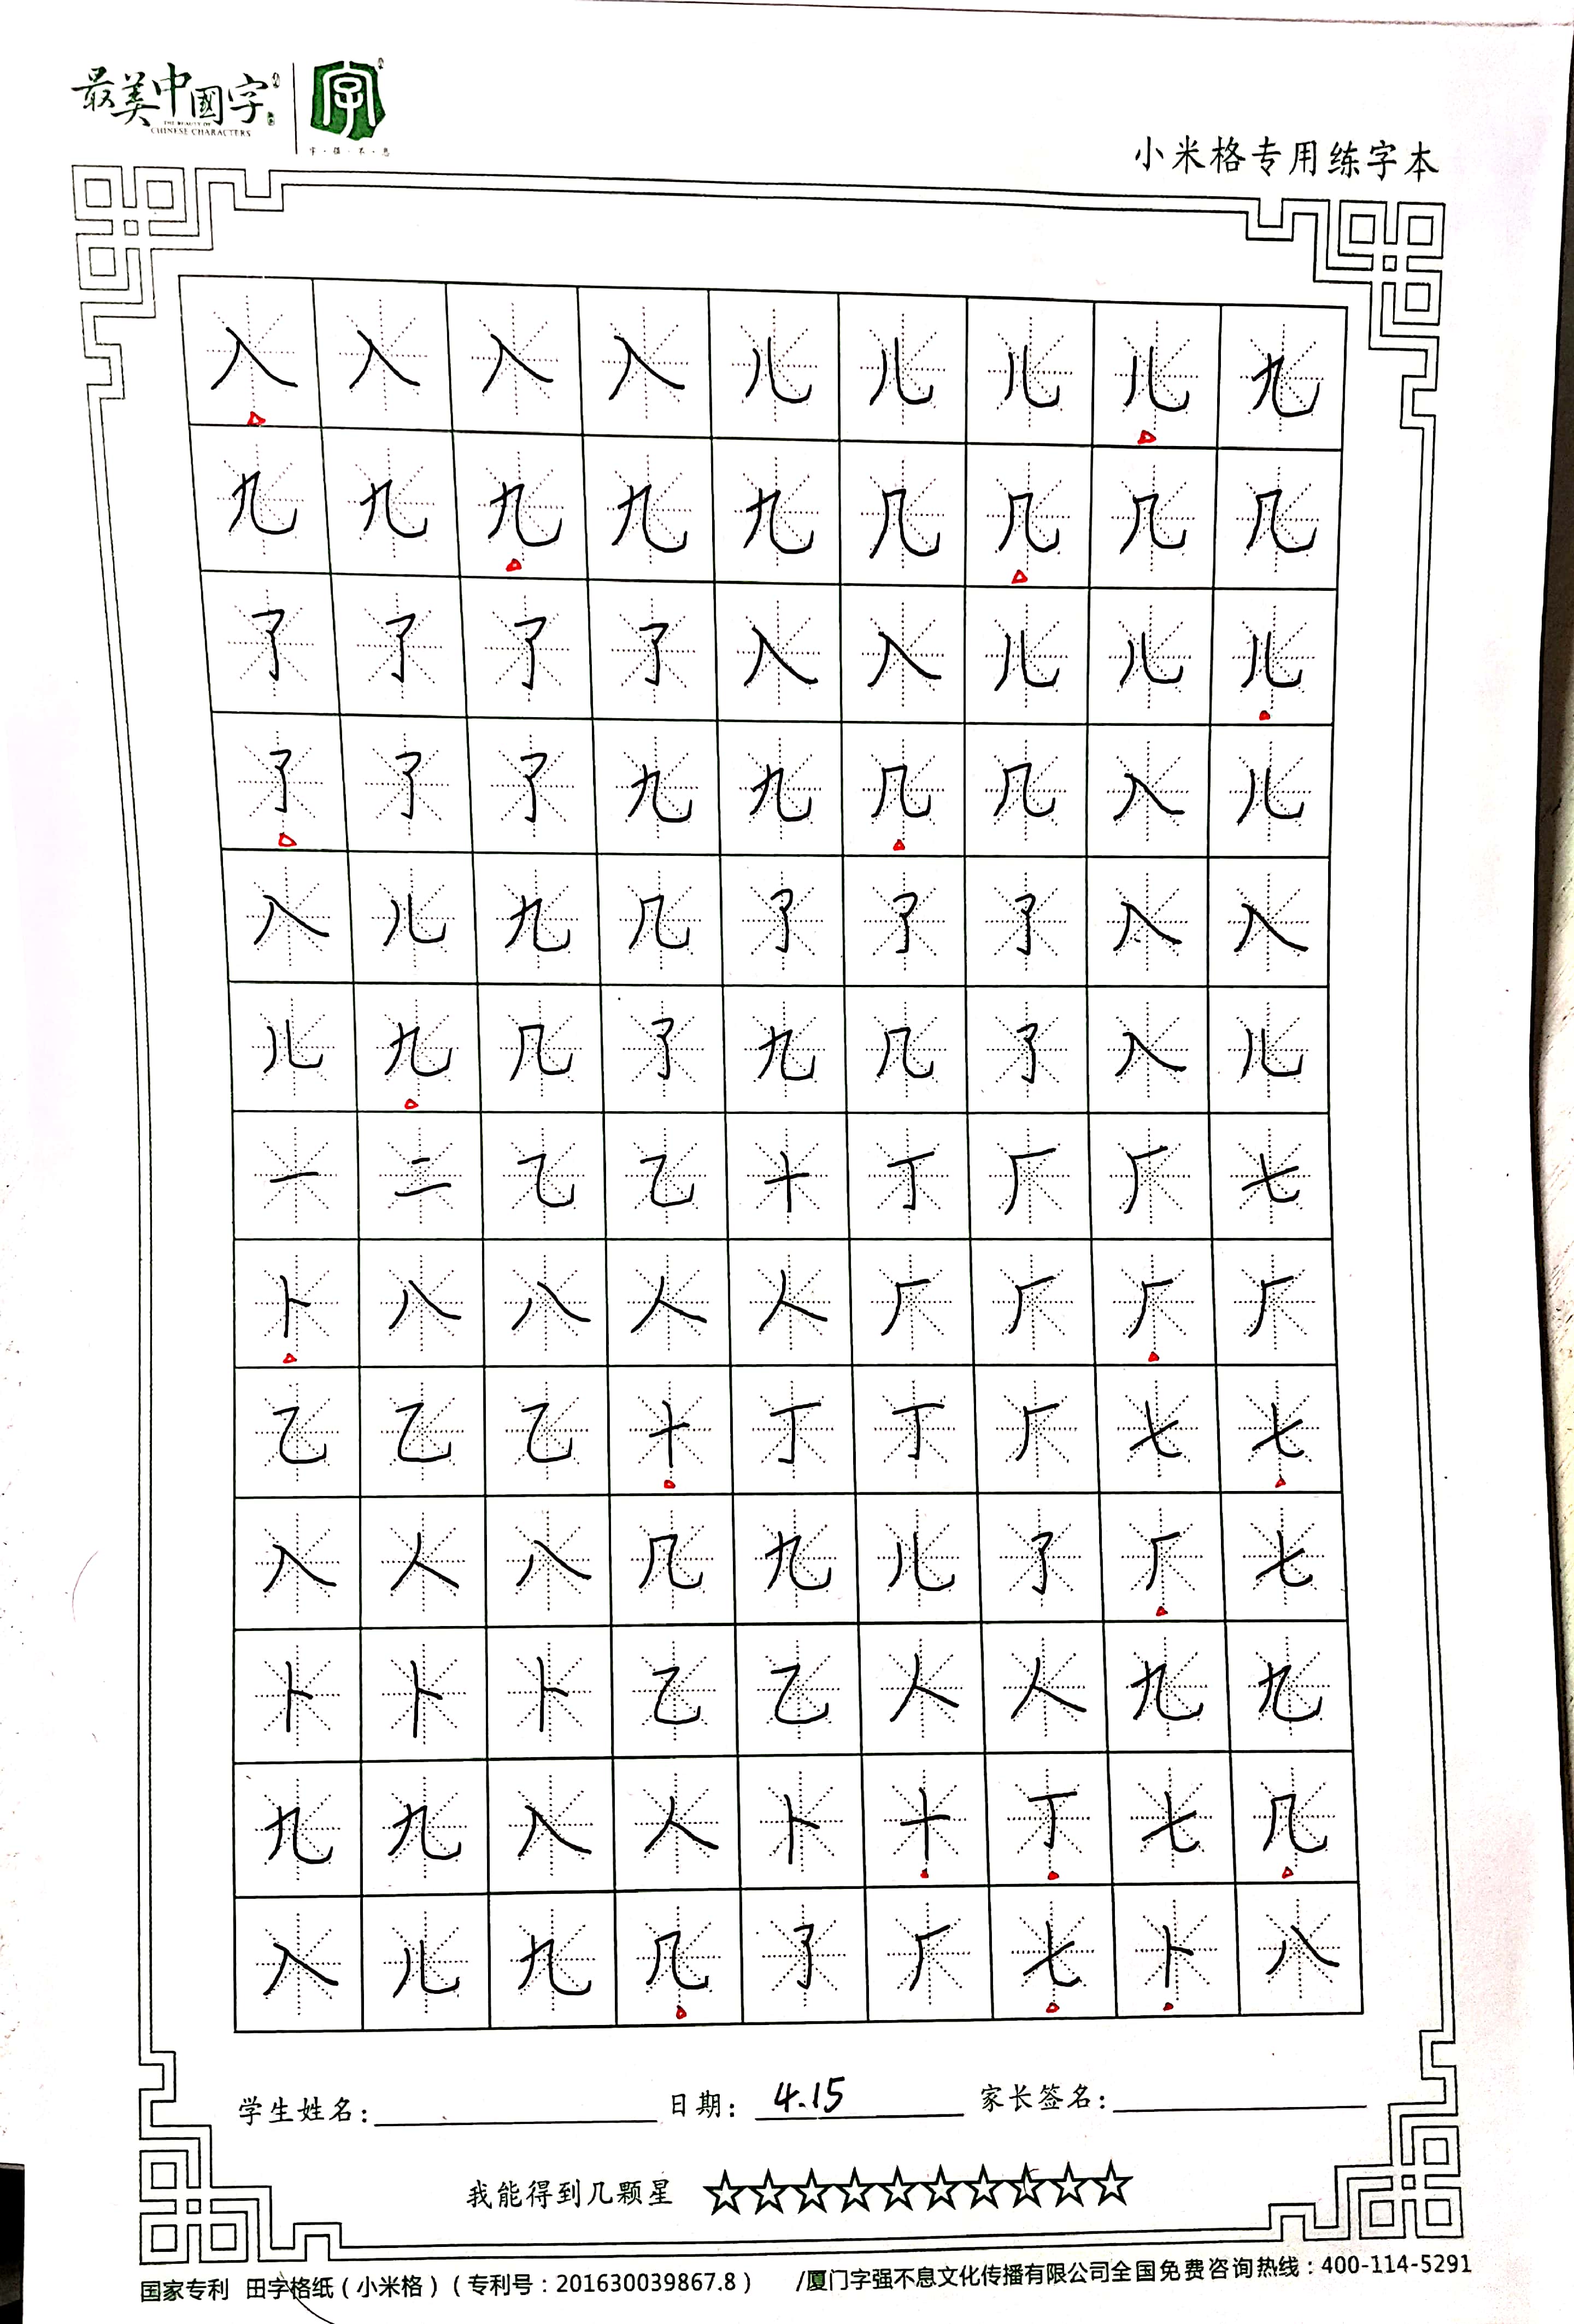 最美中國字
THE BEAUTY OF
CHINESE CHARACTERS
字
字·强·不·息
小米格专用练字本
入 入 入 入 儿 儿 儿 儿 九
九 九 九 九 九 几 几 几 几
了 了 了 了 入 入 儿 儿 儿
了 了 了 九 九 几 几 入 儿
入 儿 九 几 了 了 了 入 入
儿 九 几 了 九 几 了 入 儿
一 二 乙 乙 十 丁 厂 厂 七
卜 八 八 人 人 厂 厂 厂 厂
乙 乙 乙 十 丁 丁 厂 七 七
入 人 八 几 九 儿 了 厂 七
卜 卜 卜 乙 乙 人 人 九 九
九 九 入 人 卜 十 丁 七 几
入 儿 九 几 了 厂 七 卜 八
学生姓名: 日期: 4.15 家长签名:
我能得到几颗星 ☆☆☆☆☆☆☆☆☆☆
国家专利 田字格纸（小米格）（专利号：201630039867.8） /厦门字强不息文化传播有限公司全国免费咨询热线：400-114-5291